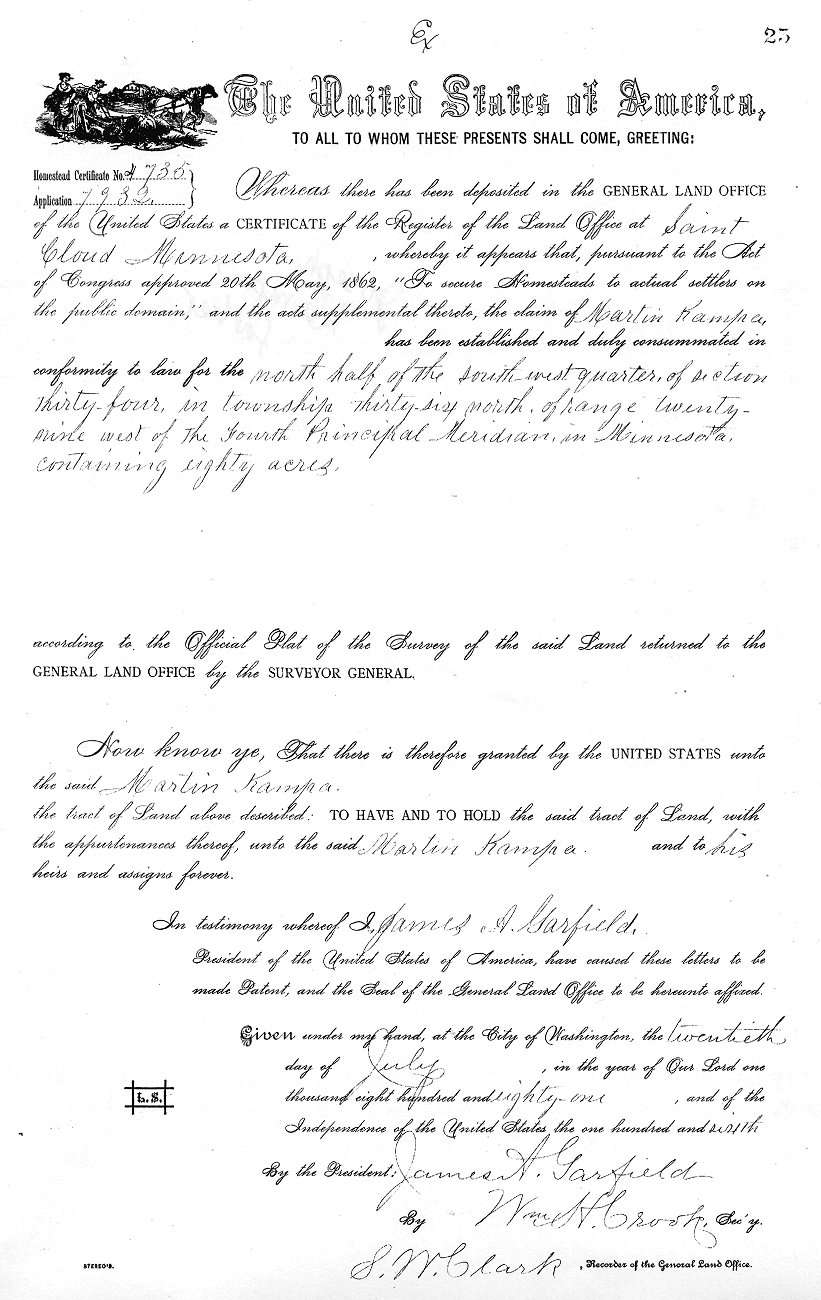 Ex
25
The United States of America,
TO ALL TO WHOM THESE PRESENTS SHALL COME, GREETING:
Homestead Certificate No. 4735
Application 7932
Whereas there has been deposited in the GENERAL LAND OFFICE
of the United States a CERTIFICATE of the Register of the Land Office at Saint
Cloud Minnesota, , whereby it appears that, pursuant to the Act
of Congress approved 20th May, 1862, "To secure Homesteads to actual settlers on
the public domain," and the acts supplemental thereto, the claim of Martin Kampa,
has been established and duly consummated in
conformity to law for the north half of the south west quarter, of section
thirty-four, in township thirty-six north, of range twenty-
nine west of the Fourth Principal Meridian, in Minnesota,
containing eighty acres,
according to the Official Plat of the Survey of the said Land returned to the
GENERAL LAND OFFICE by the SURVEYOR GENERAL.
Now know ye, That there is therefore granted by the UNITED STATES unto
the said Martin Kampa.
the tract of Land above described: TO HAVE AND TO HOLD the said tract of Land, with
the appurtenances thereof, unto the said Martin Kampa. and to his
heirs and assigns forever.
In testimony whereof I, James A. Garfield,
President of the United States of America, have caused these letters to be
made Patent, and the Seal of the General Land Office to be hereunto affixed.
Given under my hand, at the City of Washington, the twentieth
day of July , in the year of Our Lord one
thousand eight hundred and eighty-one , and of the
L.S.
Independence of the United States the one hundred and sixth
By the President: James A. Garfield
By Wm H. Crook, Sec'y.
STEREO'S.
S. W. Clark , Recorder of the General Land Office.